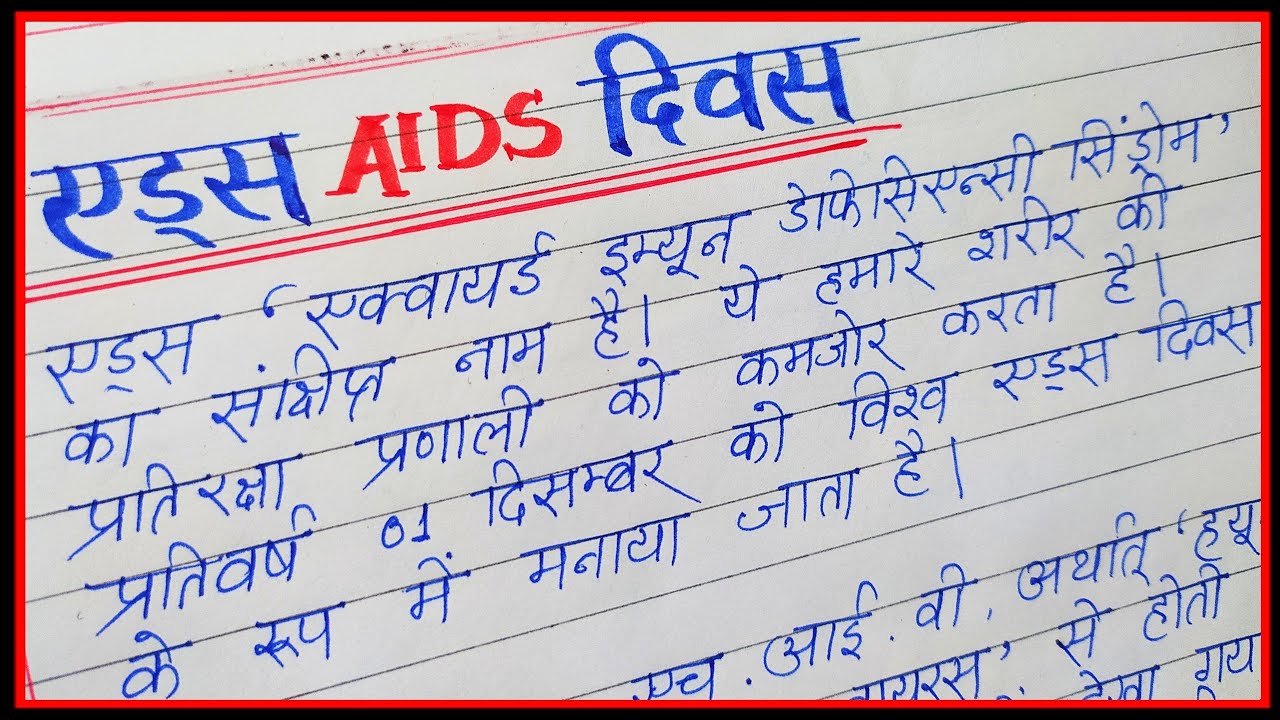 एड्स AIDS दिवस
एड्स 'एक्वायर्ड इम्यून डेफिसिएन्सी सिंड्रोम'
का संक्षिप्त नाम है। ये हमारे शरीर की
प्रतिरक्षा प्रणाली को कमजोर करता है।
प्रतिवर्ष 01 दिसम्बर को विश्व एड्स दिवस
के रूप में मनाया जाता है।
एच.आई.वी. अर्थात 'ह्यू
वायरस' से होती
देखा गय